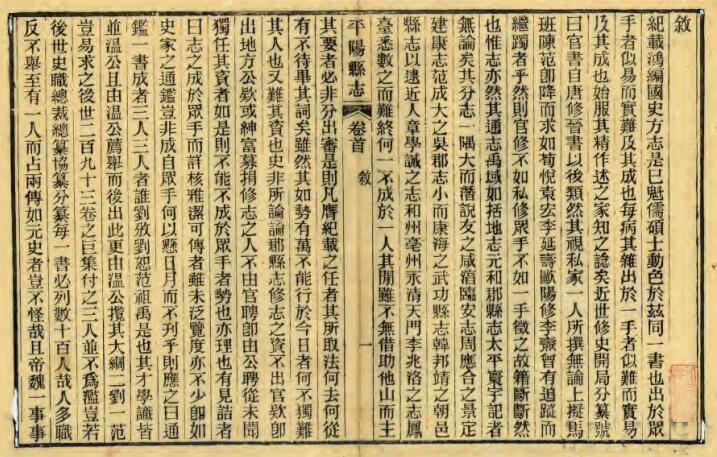 敘
紀載鴻編國史方志是已魁儒碩士動色於茲同一書也出於眾
手者似易而實難及其成也每病其雜出於一手者似難而實易
及其成也始服其精作述之家知之諗矣近世修史開局分纂號
曰官書自唐修晉書以後類然其視私家一人所撰無論上擬馬
班陳范卽降而求如荀悅袁宏李延壽歐陽修李燾曾有追蹤而
繼躅者乎然則官修不如私修眾手不如一手徵之故籍斷斷然
也惟志亦然其通志禹域如括地志元和郡縣志太平寰宇記者
無論矣其分志一隅大而潛說友之咸淳臨安志周應合之景定
建康志范成大之吳郡志小而康海之武功縣志韓邦靖之朝邑
縣志以逮近人章學誠之志和州亳州永清天門李兆洛之志鳳
臺悉數之而難終何一不成於一人其閒雖不無借助他山而主
平陽縣志
卷首
敘
一
其要者必非分出審是則凡膺紀載之任者其所取法何去何從
有不待畢其詞矣雖然其如勢有萬不能行於今日者何不獨難
其人也又難其資也史非所論論郡縣志修志之資不出官欵卽
出地方公欵或紳富募捐修志之人不由官聘卽由公聘從未聞
獨任其資者如是則不能不成於眾手者勢也亦理也有見詰者
曰志之成於眾手而詳核雅潔可傳者雖未泛覽度亦不少卽如
史家之通鑑豈非成自眾手何以縣日月而不刋乎則應之曰通
鑑一書成者三人三人者誰劉攽劉恕范祖禹是也其才學識皆
並溫公且由溫公薦舉而後出此更由溫公攬其大綱二劉一范
豈易求之後世二百九十三卷之巨集付之三人並不為濫豈若
後世史職總裁總纂協纂分纂每一書必列數十百人哉人多職
反不舉至有一人而占兩傳如元史者豈不怪哉且帝魏一事事